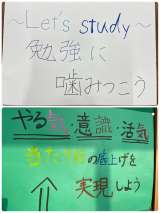 ～Let's study～
勉強に
噛みつこう
やる気・意識・活気
当たり前の底上げを
実現しよう